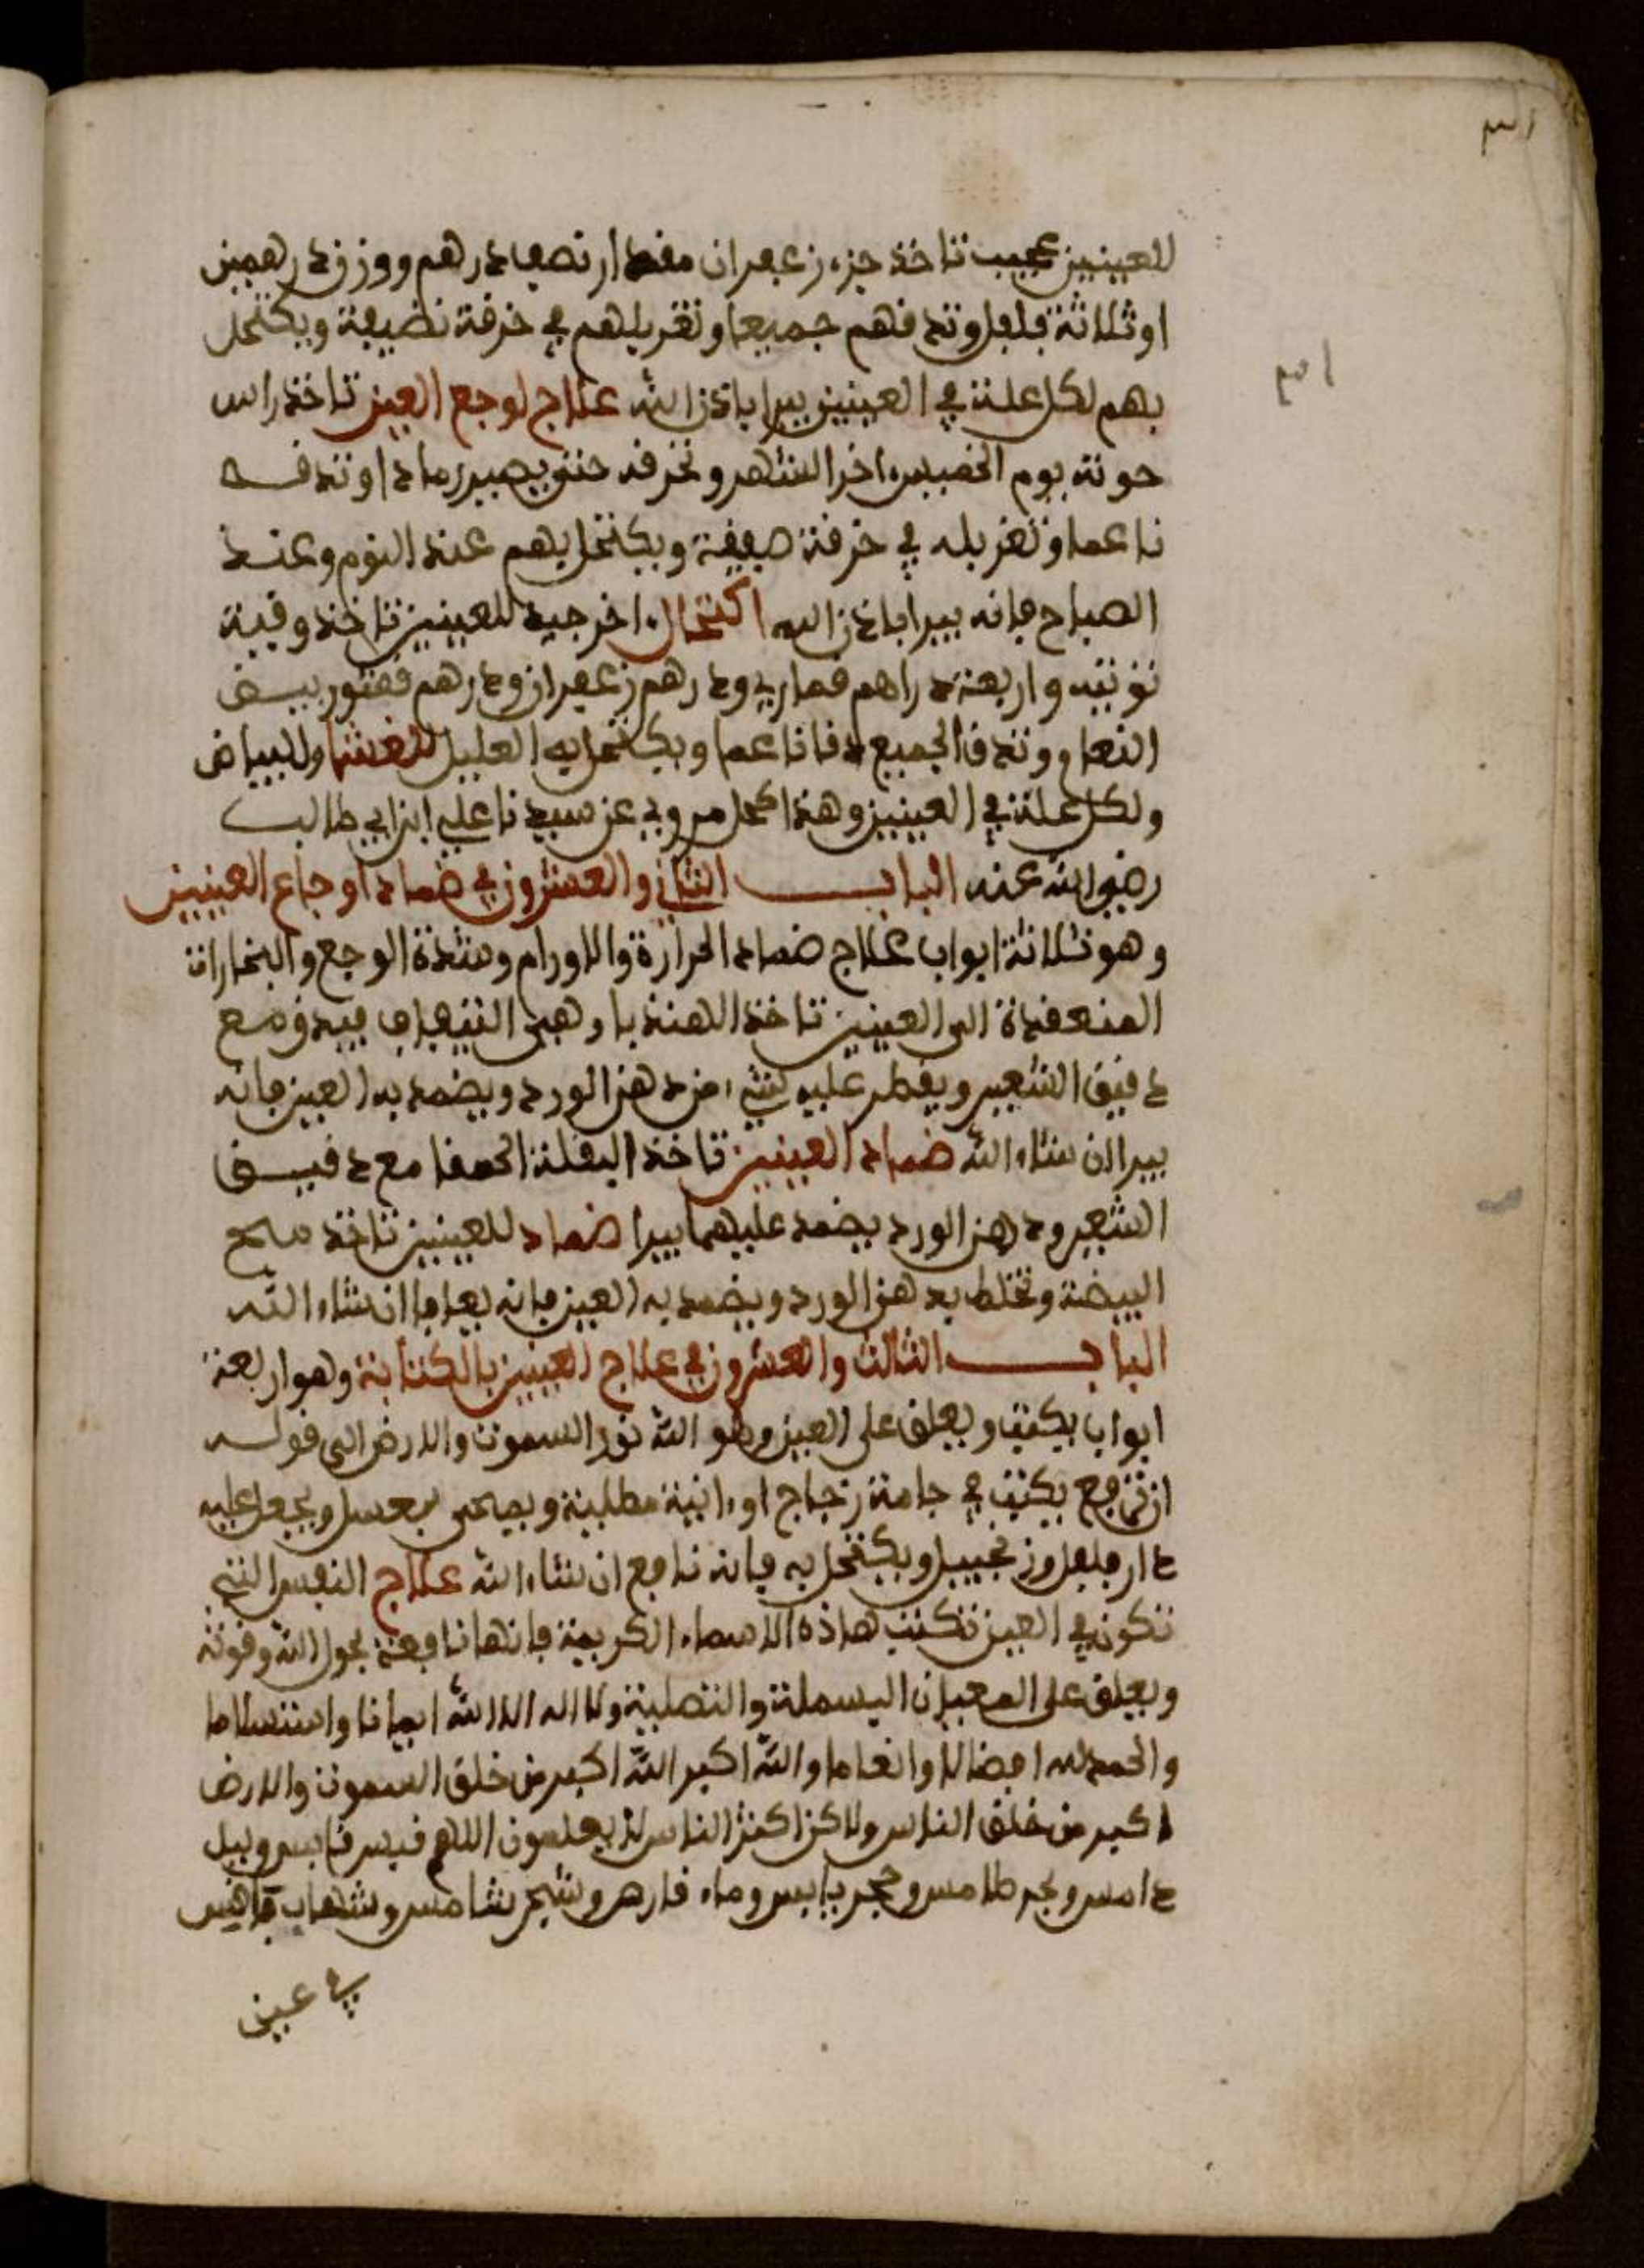 ٣١
للعينين عجيب تاخذ جزء زعفران مقدار نصف درهم ووزن درهمين
او ثلاثة فلفل وتدقهم جميعا وتغربلهم في خرقة نظيفة ويكتحل
بهم لكل علة في العينين يبرا باذن الله علاج لوجع العين تاخذ راس
حوتة يوم الخميس اخر الشهر وتحرقه حتى يصير رمادا وتدقه
ناعما وتغربله في خرقة صفيقة ويكتحل بهم عند النوم وعند
الصباح فانه يبرا باذن الله اكتحال اخر جيد للعينين تاخذ وقية
توتيه واربعة دراهم قماري ودرهم زعفران ودرهم قشور بيض
النعام وتدق الجميع دقا ناعما ويكتحل به العليل للغشا وللبياض
ولكل علة في العينين وهذا كحل مروي عن سيدنا علي ابن ابي طالب
رضي الله عنه الباب الثاني والعشرون في ضماد اوجاع العينين
وهو ثلاثة ابواب علاج ضماد الحرارة والاورام وشدة الوجع والبخارات
المنعقدة الى العينين تاخذ الهندبا وهي التيفاف فيدق مع
دقيق الشعير ويقطر عليه شيء من دهن الورد ويضمد به العين فانه
يبرا ان شاء الله ضماد العينين تاخذ البقلة الحمقا مع دقيق
الشعير ودهن الورد يضمد عليهما يبرا ضماد للعينين تاخذ مح
البيضة وتخلط بدهن الورد ويضمد به العين فانه يعافا ان شاء الله
الباب الثالث والعشرون في علاج العينين بالكتابة وهو اربعة
ابواب يكتب ويعلق على العين وهو الله نور السموت والارض الى قوله
ان ترفع يكتب في جامة زجاج او ءانية مطلية ويمحى بعسل ويجعل عليه
دار فلفل وزنجبيل ويكتحل به فانه نافع ان شاء الله علاج النفس التي
تكون في العين تكتب هاذه الاسماء الكريمة فانها نافعة بحول الله وقوته
ويعلق على المعيان البسملة والتصلية ولا اله الا الله ايمانا واستسلاما
والحمد لله افضالا وانعاما والله اكبر الله اكبر من خلق السموت والارض
اكبر من خلق الناس ولاكن اكثر الناس لا يعلمون اللهم قيس قابس وبيل
دامس وبحر طامس وحجر يابس وماء قارص وشجر شامس وشهاب قابس
في عين
٣١